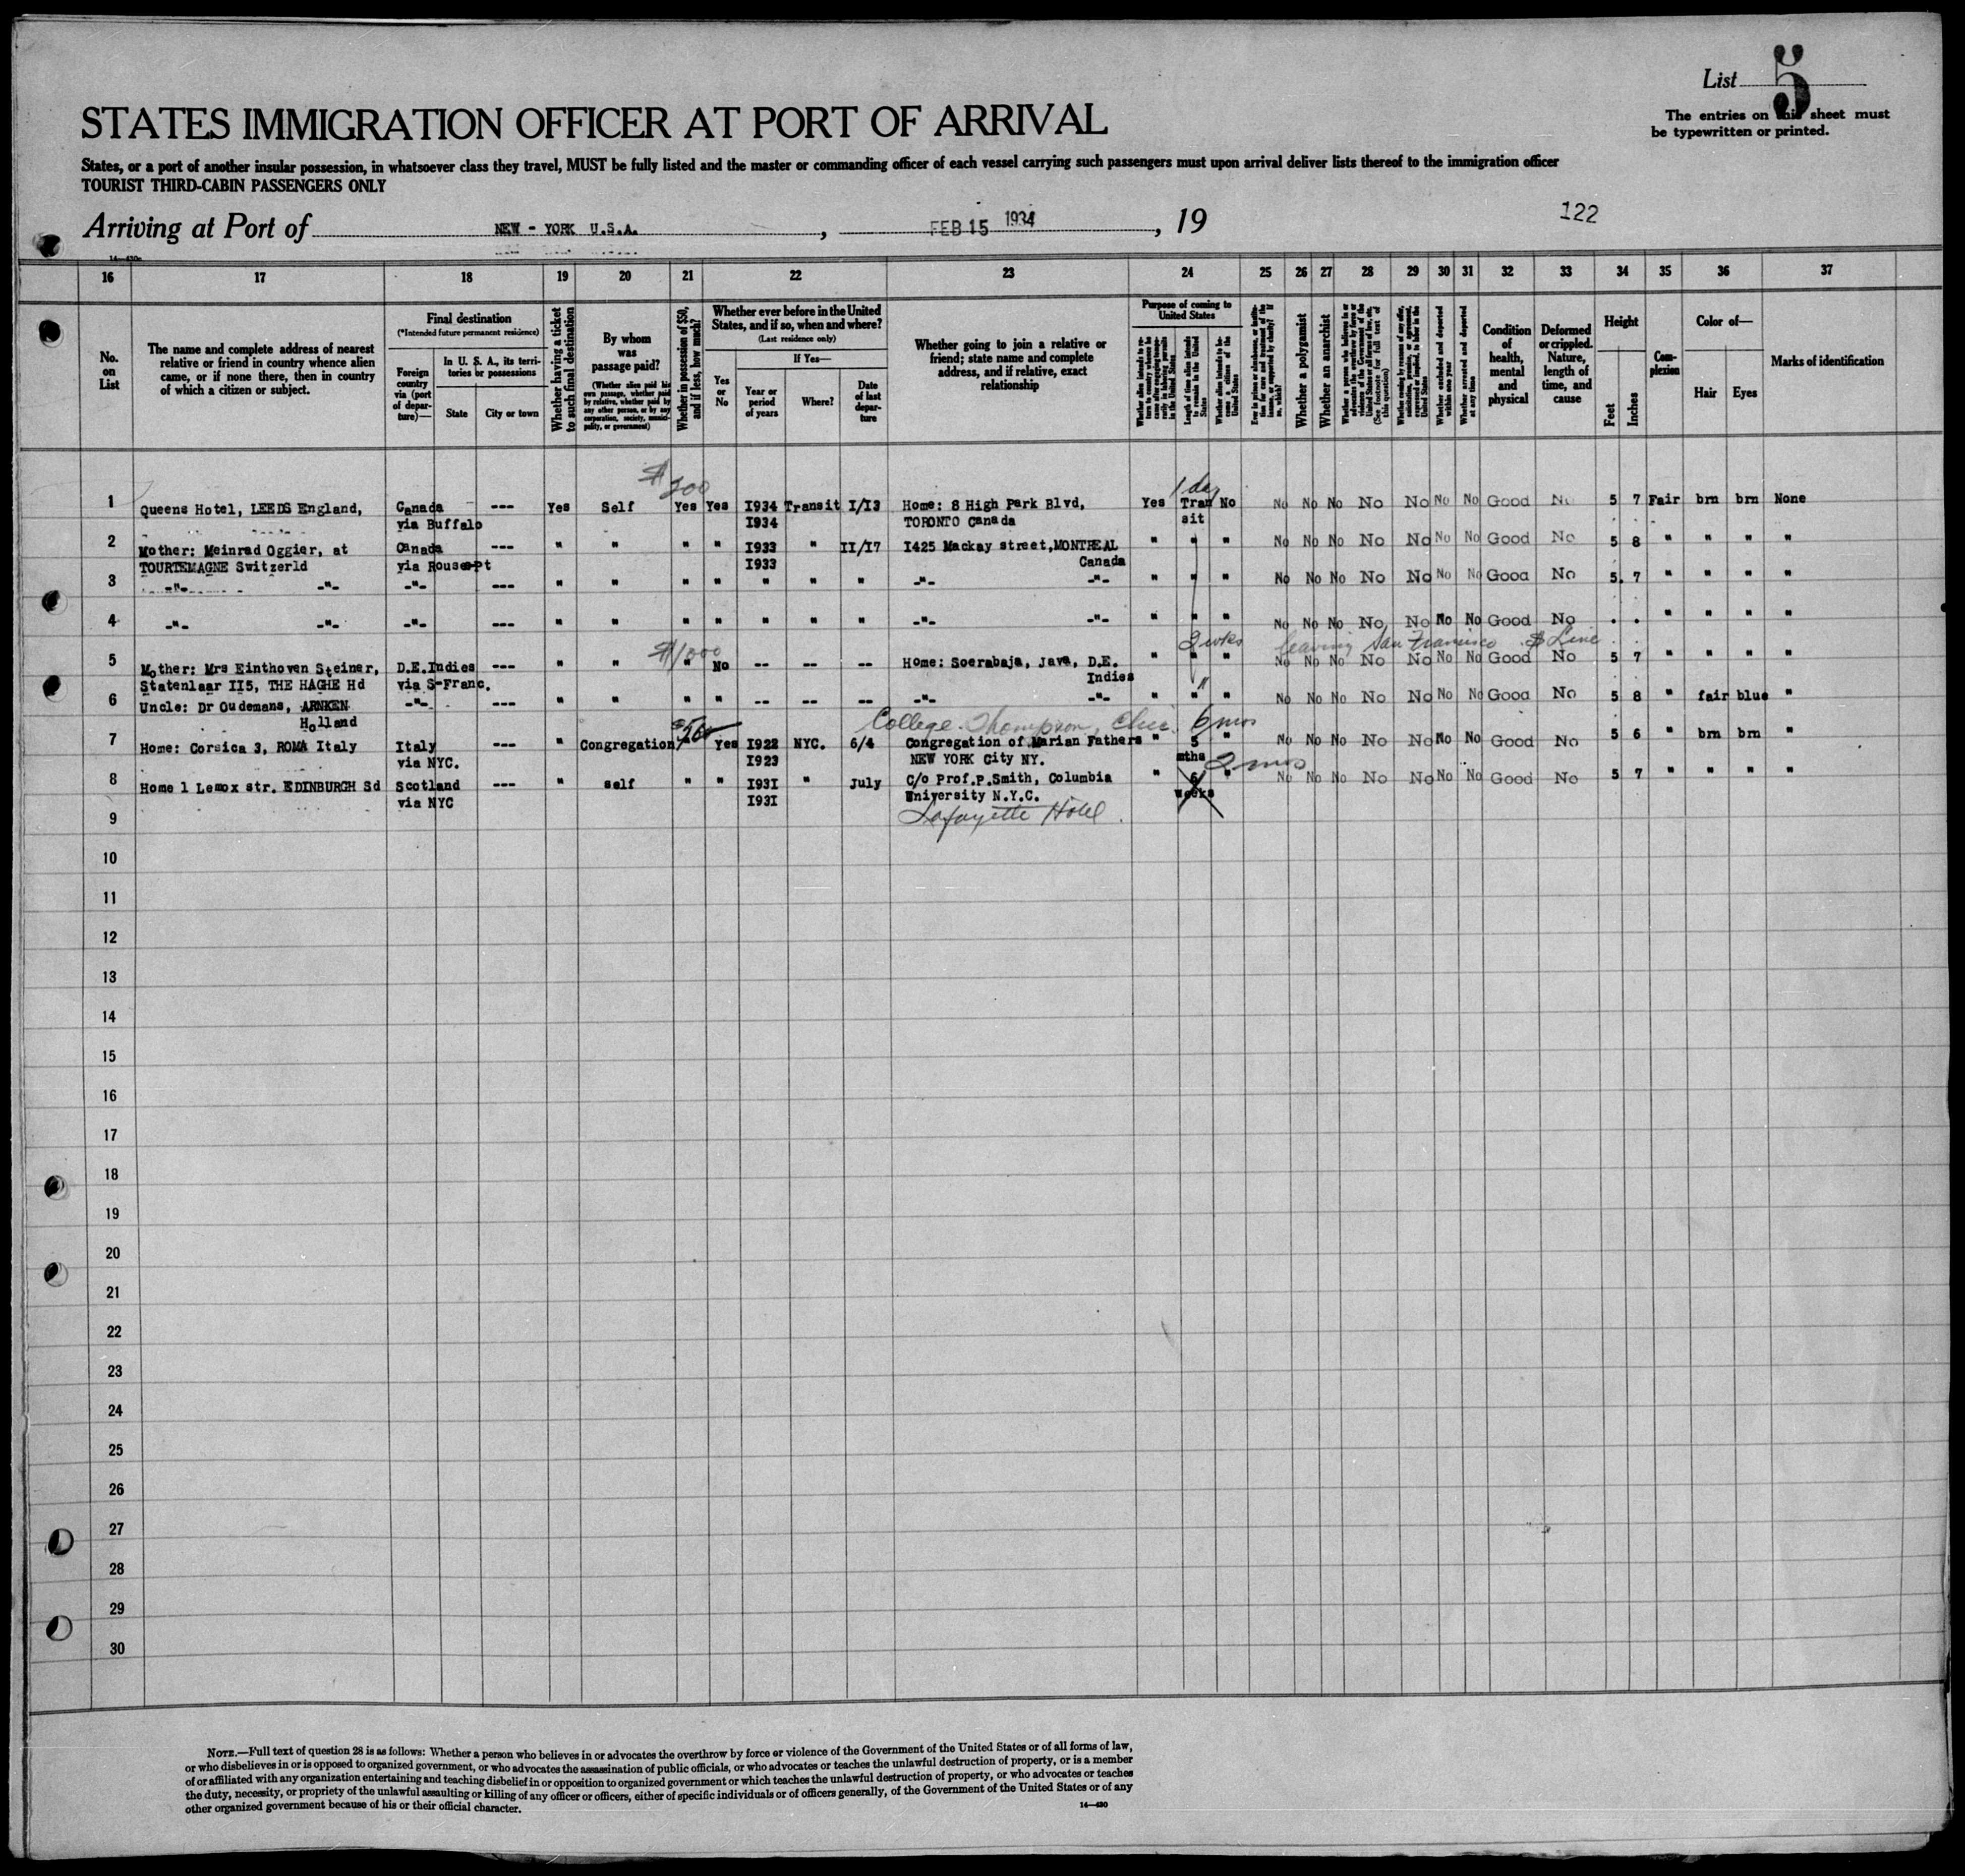 List 5
The entries on this sheet must
be typewritten or printed.
STATES IMMIGRATION OFFICER AT PORT OF ARRIVAL
States, or a port of another insular possession, in whatsoever class they travel, MUST be fully listed and the master or commanding officer of each vessel carrying such passengers must upon arrival deliver lists thereof to the immigration officer
TOURIST THIRD-CABIN PASSENGERS ONLY
Arriving at Port of NEW - YORK U.S.A. , FEB 15 1934 , 19
122
14-430
16 17 18 19 20 21 22 23 24 25 26 27 28 29 30 31 32 33 34 35 36 37
No. on List
The name and complete address of nearest
relative or friend in country whence alien
came, or if none there, then in country
of which a citizen or subject.
Final destination
(*Intended future permanent residence)
Foreign country via (port of departure)—
In U. S. A., its territories or possessions
State
City or town
Whether having a ticket to such final destination
By whom was passage paid?
(Whether alien paid his own passage, whether paid by relative, whether paid by any other person, or by any corporation, society, municipality, or government)
Whether in possession of $50, and if less, how much?
Whether ever before in the United
States, and if so, when and where?
(Last residence only)
If Yes—
Yes or No
Year or period of years
Where?
Date of last departure
Whether going to join a relative or
friend; state name and complete
address, and if relative, exact
relationship
Purpose of coming to
United States
Length of time alien intends to remain in the United States
Whether alien intends to become a citizen of the United States
Whether a polygamist
Whether an anarchist
Whether excluded and deported within one year
Whether arrested and deported at any time
Condition of health, mental and physical
Deformed or crippled. Nature, length of time, and cause
Height
Feet
Inches
Complexion
Color of—
Hair
Eyes
Marks of identification
$ 200
1 day
1 Queens Hotel, LEEDS England, Canada --- Yes Self Yes Yes I934 Transit I/I3 Home: 8 High Park Blvd, Yes Tran No No No No No No No No Good No 5 7 Fair brn brn None
via Buffalo I934 TORONTO Canada sit
2 Mother: Meinrad Oggier, at Canada --- " " " " I933 " II/I7 I425 Mackay street, MONTREAL " " " No No No No No No No Good No 5 8 " " " "
TOURTEMAGNE Switzerld via Rousespt I933 Canada
3 -"- -"- -"- --- " " " " " " " -"- -"- " " " No No No No No No No Good No 5 7 " " " "
4 -"- -"- -"- --- " " " " " " " -"- -"- " " " No No No No No No No Good No . . " " " "
$1000 2 wks leaving San Francisco $ Line
5 Mother: Mrs Einthoven Steiner, D.E.Indies --- " " " No -- -- -- Home: Soerabaja, Java, D.E. " " " No No No No No No No Good No 5 7 " " " "
Statenlaar II5, THE HAGHE Hd via S-Franc. Indies
6 Uncle: Dr Oudemans, ARNKEN -"- --- " " " " -- -- -- -"- -"- " " " No No No No No No No Good No 5 8 " fair blue "
Holland
College Thompson, Chic. 6 mos
7 Home: Corsica 3, ROMA Italy Italy --- " Congregation Yes I922 NYC. 6/4 Congregation of Marian Fathers " 5 " No No No No No No No Good No 5 6 " brn brn "
via NYC. I923 NEW YORK City NY. mths
2 mos
8 Home 1 Lemox str. EDINBURGH Sd Scotland --- " self " " I93I " July C/o Prof.P.Smith, Columbia " 6 " No No No No No No No Good No 5 7 " " " "
via NYC I93I University N.Y.C. weeks
9 Lafayette Hotel.
10
11
12
13
14
15
16
17
18
19
20
21
22
23
24
25
26
27
28
29
30
NOTE.—Full text of question 28 is as follows: Whether a person who believes in or advocates the overthrow by force or violence of the Government of the United States or of all forms of law,
or who disbelieves in or is opposed to organized government, or who advocates the assassination of public officials, or who advocates or teaches the unlawful destruction of property, or is a member
of or affiliated with any organization entertaining and teaching disbelief in or opposition to organized government or which teaches the unlawful destruction of property, or who advocates or teaches
the duty, necessity, or propriety of the unlawful assaulting or killing of any officer or officers, either of specific individuals or of officers generally, of the Government of the United States or of any
other organized government because of his or their official character.
14—430